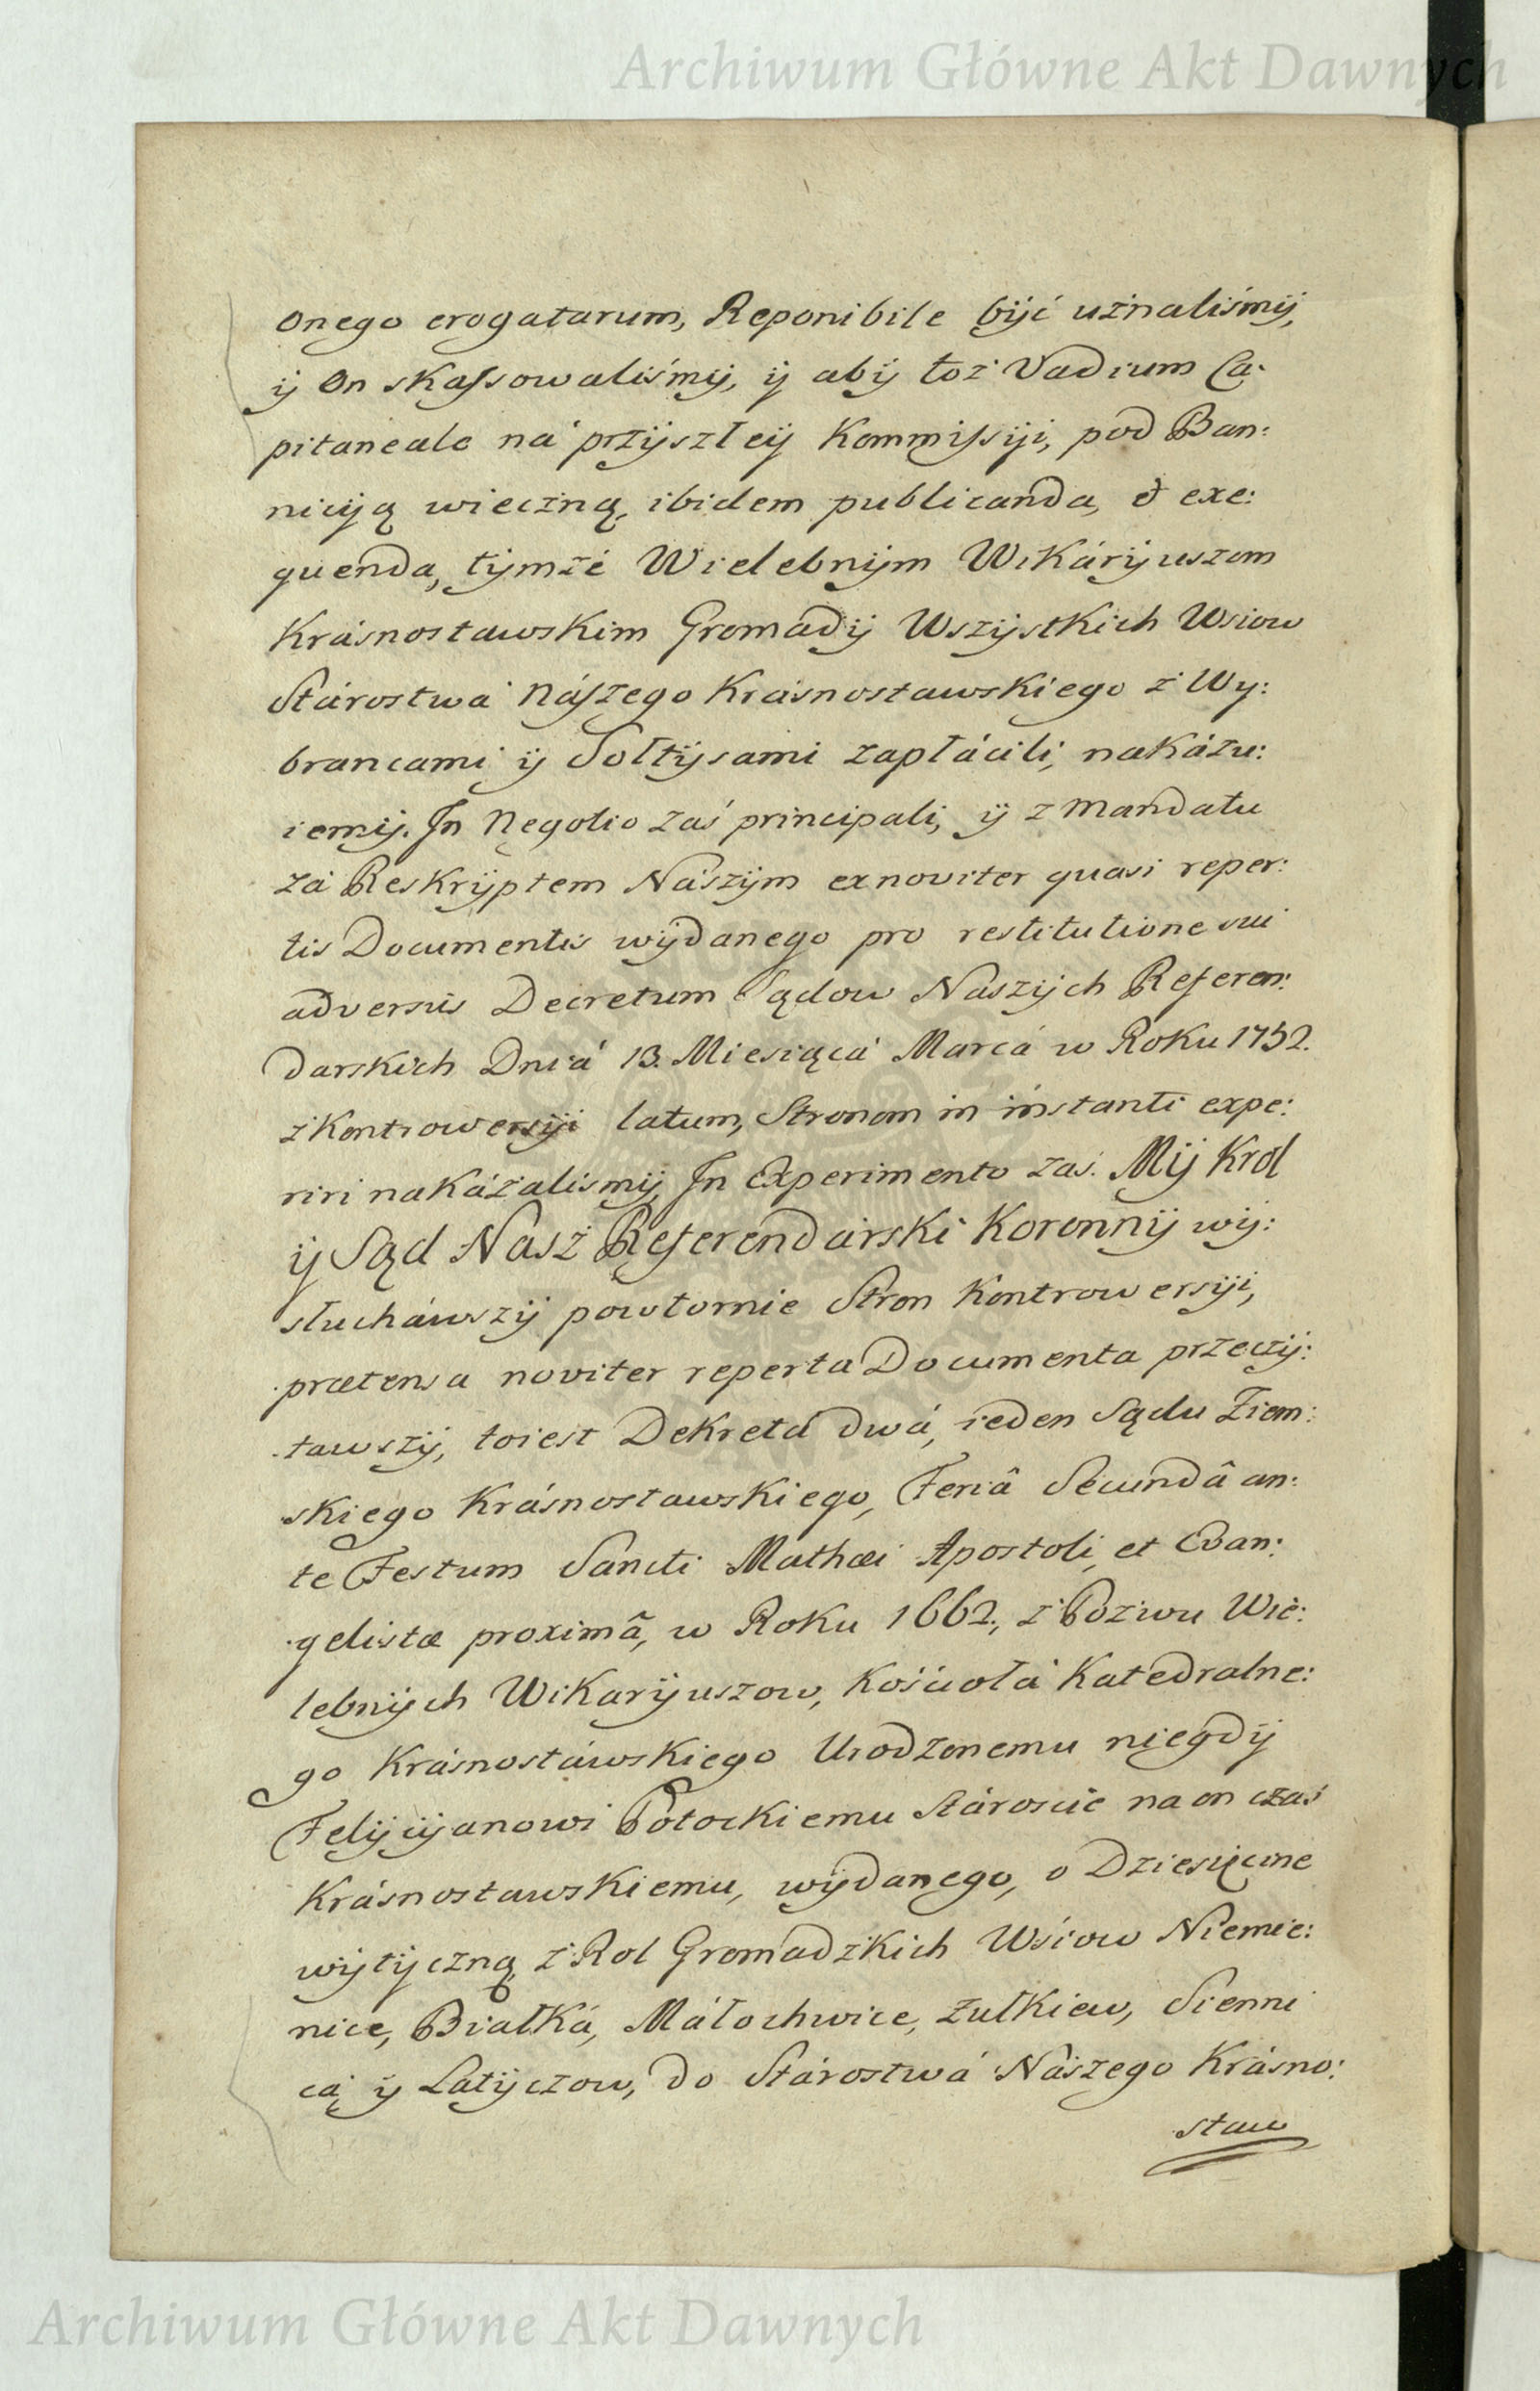 Archiwum Główne Akt Dawnych
onego erogatarum, Reponibile bÿić uznaliśmÿ,
ÿ On skassowaliśmÿ, ÿ abÿ toż Vadium Ca:
pitaneale ná przÿszłeÿ Kommissÿi, pod Ban:
nicÿą wieczną, ibidem publicanda, & exe:
quenda, tÿmże Wielebnÿm Wikárÿuszom
Krásnostawskim Gromadÿ Wszÿstkich Wsiow
Stárostwá Nászego Krásnostawskiego z Wy:
brancami ÿ Sołtÿsami zapłácili, nakázu:
iemÿ. In Negotio zaś principali, ÿ z Mandatu
zá Reskrÿptem Nászÿm ex noviter quasi reper:
tis Documentis wÿdanego pro restitutione sui
adversus Decretum Sądow Naszÿch Referen:
darskich Dniá 13. Miesiącá Marcá w Roku 1752.
z Kontrowersÿi latum, Stronom in instanti expe:
riri nakázalismÿ, In Experimento zaś. Mÿ Krol
ÿ Sąd Nasz Referendarski Koronnÿ wÿ:
słucháwszÿ powtornie Stron Kontrowersÿi,
prætensa noviter reperta Documenta przeczÿ:
tawszÿ, toiest Dekretá dwá, ieden Sądu Ziem:
skiego Krásnostawskiego, Feriâ Secundâ an:
te Festum Sancti Mathæi Apostoli, et Evan:
gelistæ proximâ, w Roku 1662, z Pozwu Wie:
lebnÿch Wikarÿuszow, Kościołá Katedralne:
go Krásnostáwskiego Urodzonemu niegdÿ
Felÿcÿanowi Potockiemu Stároscie na on czas
Krásnostawskiemu, wÿdanego, o Dziesięcine
wÿtÿczną z Rol Gromadzkich Wsiow Niemie:
nice, Białká, Máłochwice, Zułkiew, Sienni
cą ÿ Latÿczow, do Stárostwá Nászego Krásno:
staw
Archiwum Główne Akt Dawnych